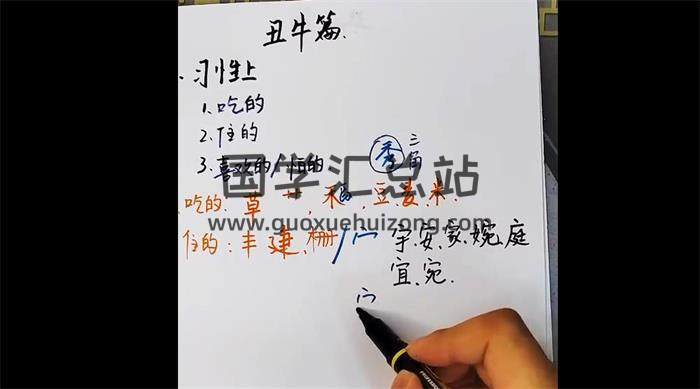 丑牛篇.
、习性上
1.吃的
2.住的
3.喜欢的/怕的.
三角
国学汇总站
、吃的:草艹,禾,豆麦米.
www.guoxuehuizong.com
住的:丰建、栅/宀 宇、安、家、婉、庭
宜、宛.
宀